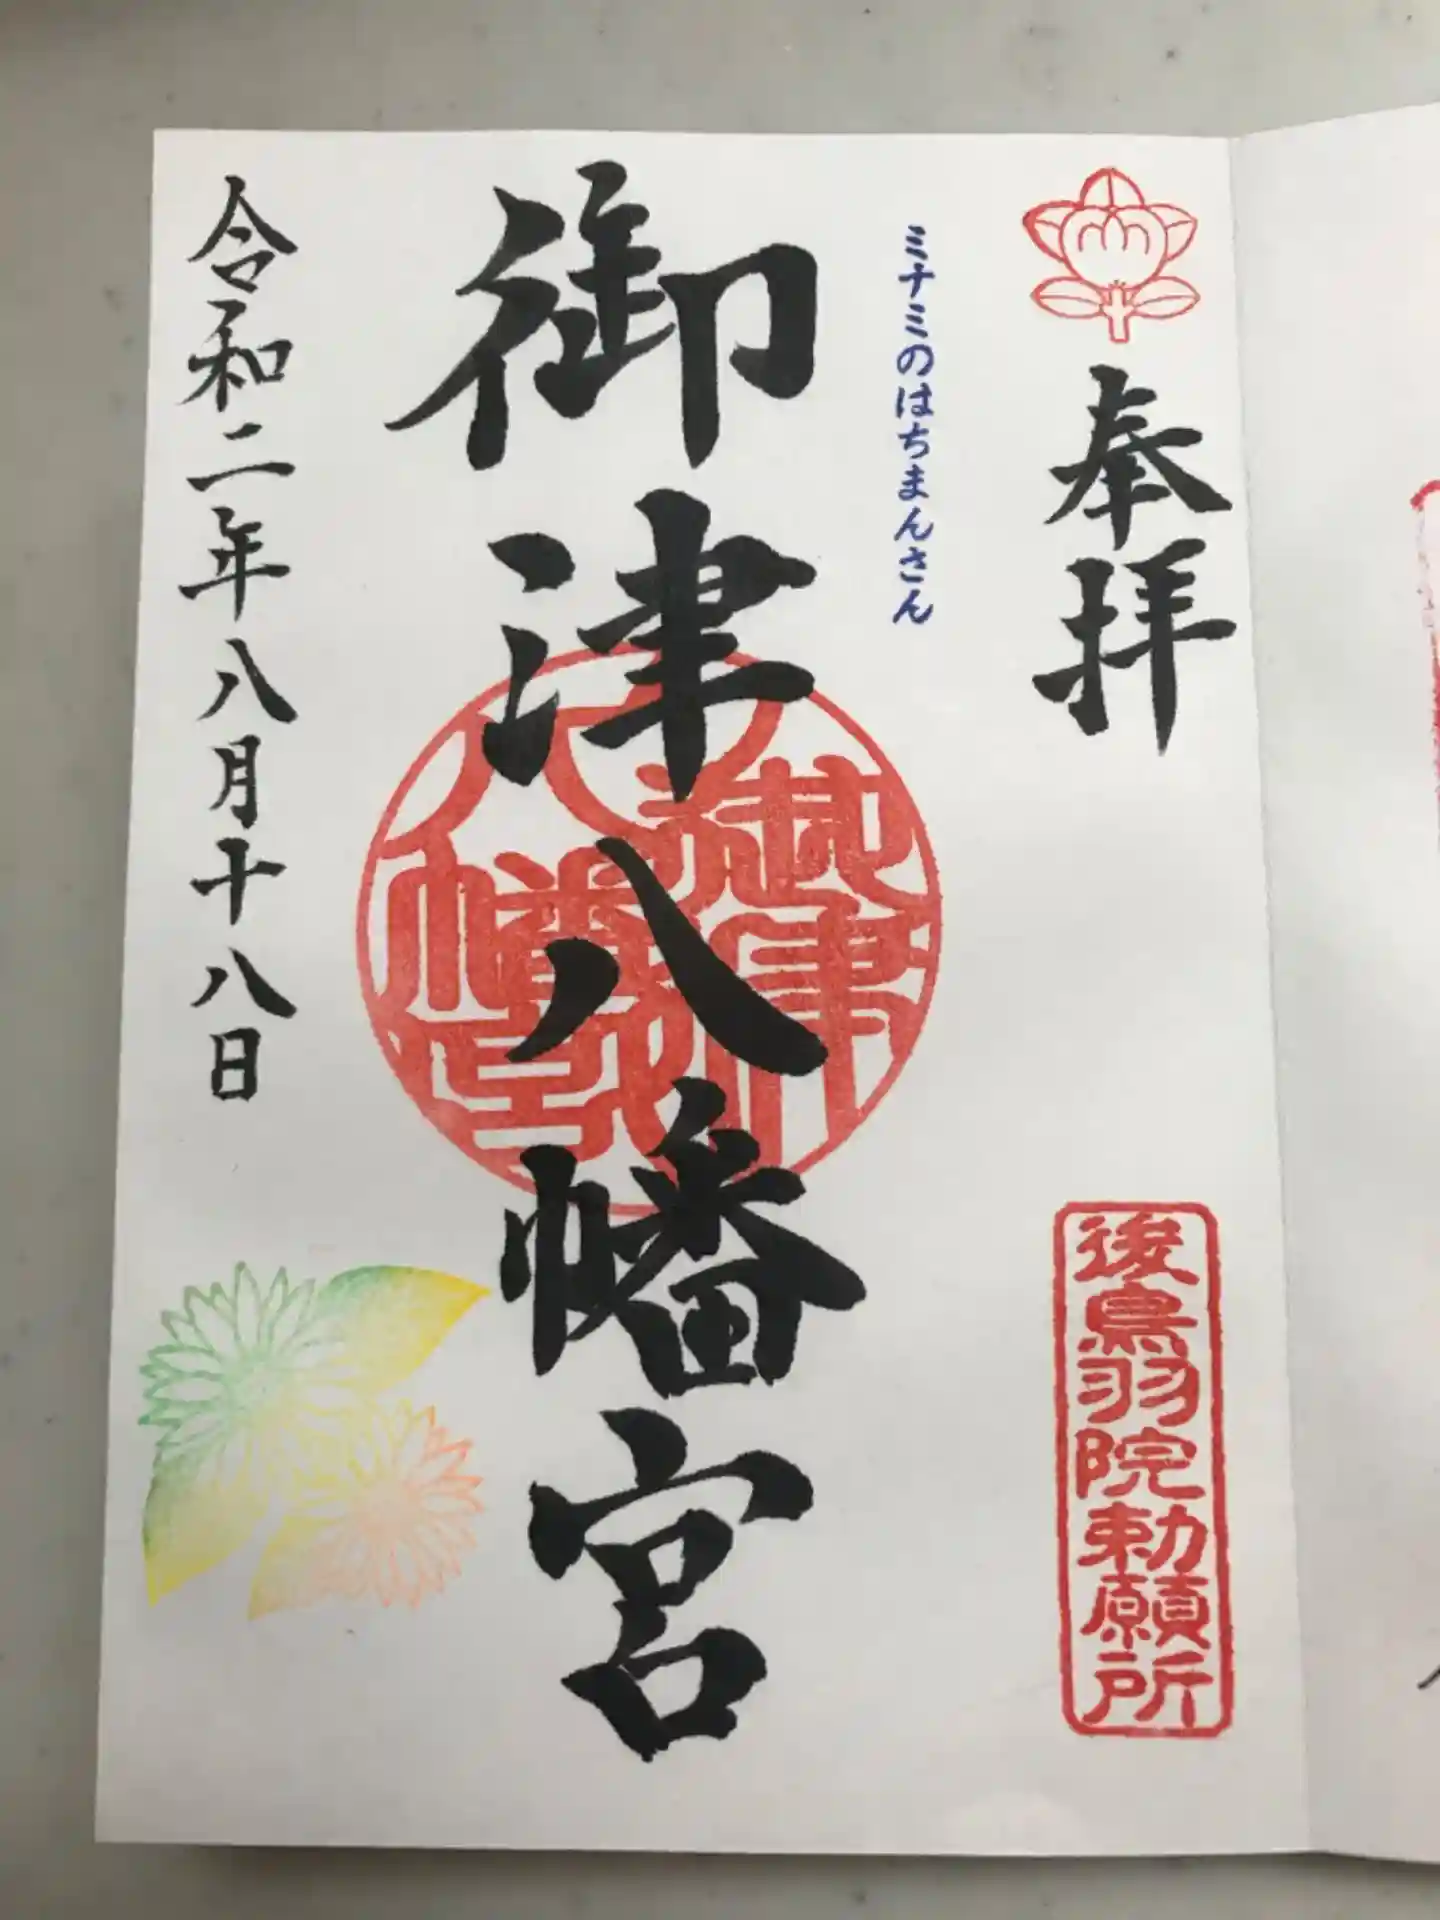 奉拝
後鳥羽院勅願所
ミナミのはちまんさん
御津八幡宮
令和二年八月十八日